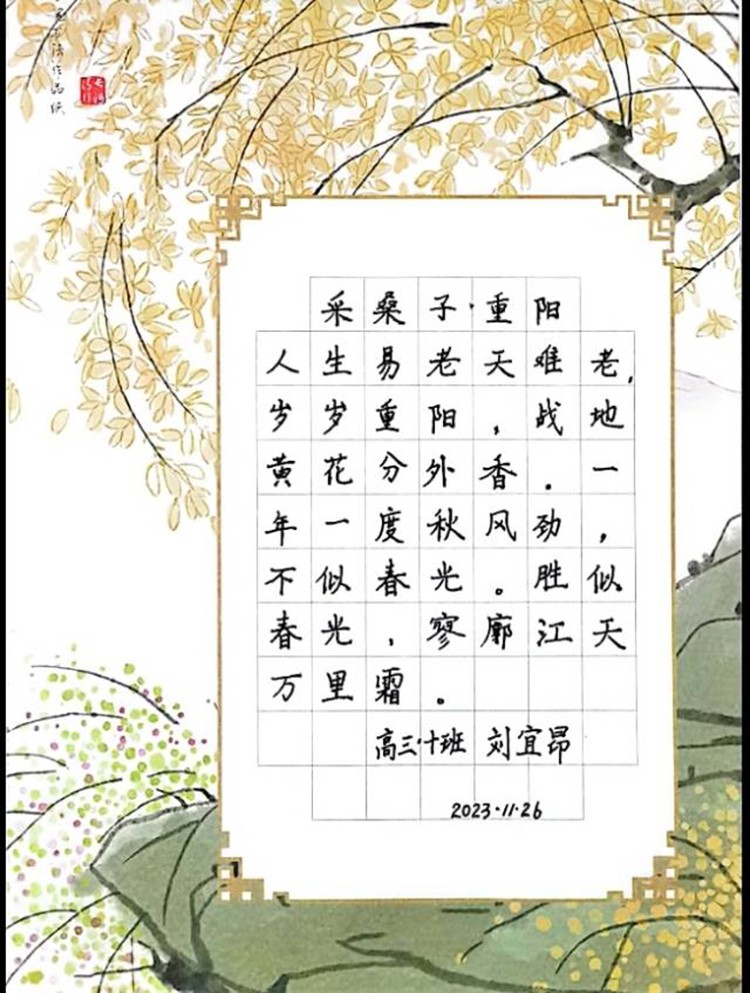 采桑子·重阳
人生易老天难老,
岁岁重阳,战地
黄花分外香.一
年一度秋风劲,
不似春光。胜似
春光,寥廓江天
万里霜。
高三·十班 刘宜昂
2023·11·26